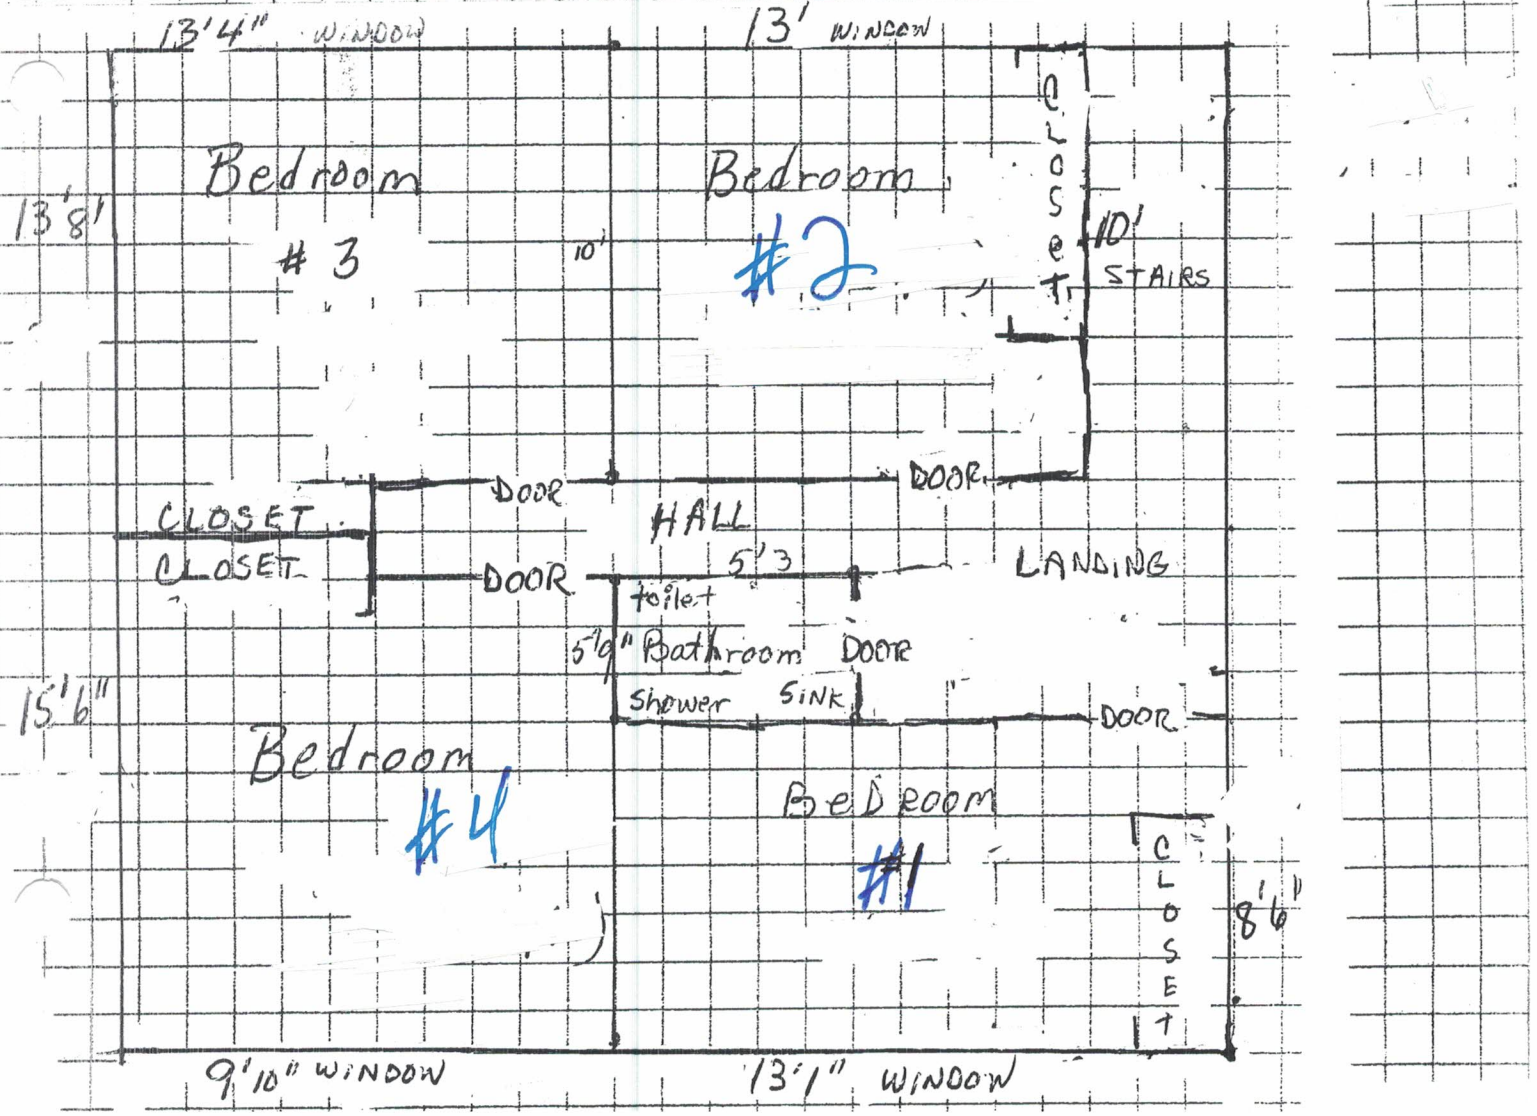 13'4" WINDOW
13' WINDOW
CLOSET
Bedroom
# 3
13'8'
10'
Bedroom
#2
10'
STAIRS
DOOR
DOOR
CLOSET
HALL
CLOSET
DOOR
5'3
LANDING
toilet
5'9" Bathroom
DOOR
Shower SINK
DOOR
15'6"
Bedroom
#4
BeDroom
#1
CLOSET
8'6"
9'10" WINDOW
13'1" WINDOW